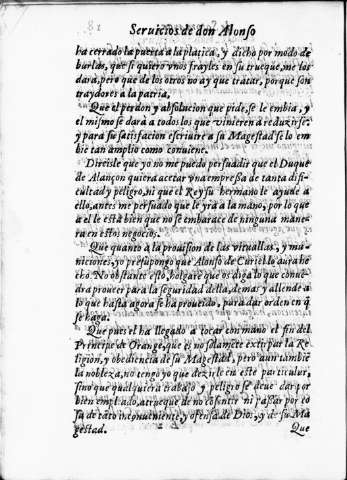 Seruicios de don Alonso
ha cerrado la puerta a la platica, y dicho por modo de
burlas, que si quiero vnos frayles en su trueque, me los
dara, pero que de los otros no ay que tratar, porque son
traydores a la patria.
Que el perdon y absolucion que pide, se le embia, y
el mismo se dará a todos los que vinieren a reduzirse:
y para su satisfacion escriuire a su Magestad se lo em
bie tan amplio como conuiene.
Direisle que yo no me puedo persuadir que el Duque
de Alançon quiera acetar vna empresa de tanta difi-
cultad y peligro, ni que el Rey su hermano le ayude a
ello, antes me persuado que le yra a la mano, por lo que
a el le está bien que no se embarace de ninguna mane-
ra en estos negocios.
Que quanto a la prouision de las vituallas, y mu-
niciones, yo presupongo que Alonso de Curiel lo aura he
cho. No obstante esso, holgare que os diga lo que conue
dra proueer para la seguridad della, demas y allende a
lo que hasta agora se ha proueido, para dar orden en q̃
se haga.
Que pues el ha llegado a tocar con mano el fin del
Principe de Orange, que es no solamente extirpar la Re
ligion, y obediencia de su Magestad, pero aun tambiẽ
la nobleza, no tengo yo que dezirle en este particular,
sino que qualquiera trabajo y peligro se deue dar por
bien empleado, a trueque de no cõsentir ni passar por co
sa de tãto inconueniente, y ofensa de Dios, y de su Ma
gestad.
Que